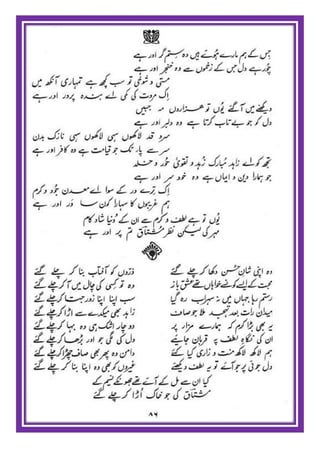 جس کے ہم مارے ہوئے ہیں وہ ستم گر اور ہے
چور ہے دل جس کے زخموں سے وہ خنجر اور ہے
مستی و شوخی تو سب کچھ ہے تمہاری آنکھ میں
اک مروت کی کمی اے بندہ پرور اور ہے
دیکھنے میں آ گئے یوں تو ہزاروں مہ جبیں
دل کو جو بے تاب کرتا ہے وہ دلبر اور ہے
سرو قد لاکھوں سہی لاکھوں سہی نازک بدن
سر سے پا تک جو قیامت ہے وہ کافر اور ہے
تجھ کو اے زاہد مبارک زہد و تقویٰ حور و خلد
جو ہمارا دین و ایماں ہے وہ خود سر اور ہے
اک ترے در کے سوا اے معدن جود و کرم
ہم غریبوں کا سہارا کون سا در اور ہے
یوں تو ہے لطف و کرم سے ان کے دنیا شاد کام
مہر کی لیکن نظر مشتاق تم پر اور ہے
وہ اپنی شان حسن دکھا کر چلے گئے
ذروں کو آفتاب بنا کر چلے گئے
وہ تو کسی کی چال میں آ کر چلے گئے
رستم رہا جہاں میں نہ سہراب رہ گیا
سب اپنا اپنا زور جتا کر چلے گئے
زاہد بھی میکدے سے اڑا کر چلے گئے
یہ بھی بڑا کرم کہ ہمارے مزار پر
دو چار اشک ہی وہ بہا کر چلے گئے
ان کی نگاہ لطف پہ قربان جائیے
دل کی لگی جو اور بڑھا کر چلے گئے
ہم لاکھ لاکھ منت و زاری کیا کئے
دامن وہ پھر بھی صاف چھڑا کر چلے گئے
دل جوئی پر جو آئے تو یہ لطف دیکھئے
غیروں کو بھی وہ اپنا بنا کر چلے گئے
کیا ان سے مل کے آئے تھے جھونکے نسیم کے
مشتاق کی جو خاک اڑا کر چلے گئے
۸۶